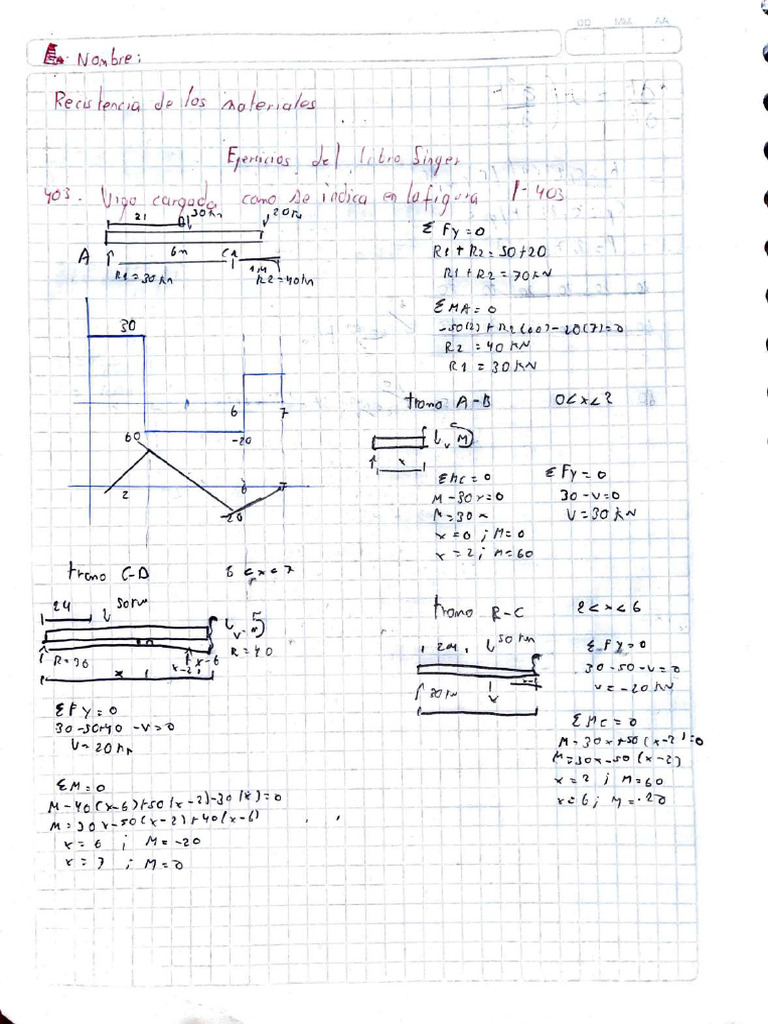 DD MM AA
Nombre:
Recistencia de los materiales
Ejercicios del libro Singer
403. Viga cargada como se indica en la figura P-403
30 kn 20 kN
A 6m
1m
R1=30kN R2=40kN
Σ Fy=0
R1+R2=50+20
R1+R2=70kN
Σ MA=0
-50(2)+R2(60)-20(7)=0
R2=40KN
R1=30KN
30
6 7
-20
60
2 6 7
-20
tramo A-B 0<x<2
v M
x
Σ Mc=0
M-30x=0
M=30x
x=0 ; M=0
x=2 ; M=60
Σ Fy=0
30-v=0
V=30 KN
tramo C-D 6<x<7
R=30 x x-2 x-6 R=40
Σ Fy=0
30-50+40-v=0
Σ M=0
M-40(x-6)+50(x-2)-30(x)=0
M=30x-50(x-2)+40(x-6)
x=6 ; M=-20
x=7 ; M=0
tramo B-C 2<x<6
Σ Fy=0
30-50-v=0
v=-20 KN
Σ Mc=0
M-30x+50(x-2)=0
M=30x-50(x-2)
x=2 ; M=60
x=6 ; M=-20